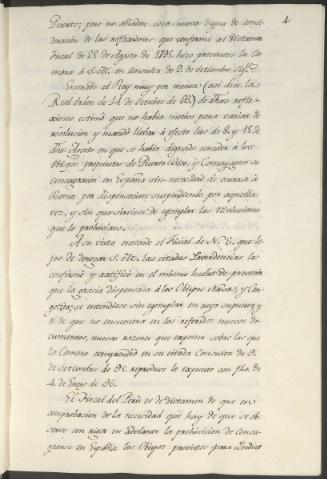 4
Puerto; pero no añaden cosa nueva digna de consi-
deracion de las reflexiones que conforme al dictamen
Fiscal de 25 de Agosto de 1795 hizo presentes la Ca-
mara à S.M. en consulta de 2 de Setiembre
Enterado el Rey muy por menor (asi dice la
Real Orden de 14 de Octubre de 95) de dhas refle-
xiones estimó que no habia motivo para variar de
resolucion y mandó llevar à efecto las de 8 y 15 de
dho Agosto en que se habia dignado conceder à los
Obispos propuestos de Puerto Rico, y Comayagua su
consagracion en España sin necesidad de ocurrir à
Roma por dispensacion suspendiendo por aquella
vez, y sin que sirviese de egemplar las resoluciones
que lo prohiben.
A su vista entiende el Fiscal de N.E. que le-
jos de derogar S.M. las citadas Providencias las
confirmó y ratificó en el mismo hecho de prevenir
que la gracia dispensada à los Obispos
se entendiese sin egemplar, en cuyo supuesto y
el de que no encuentra en los referidos nuevos do-
cumentos, nueva razon que exponer sobre las que
la Camara comprendió en su citada Consulta de 2
de Setiembre de 95 reproduce lo expuesto con fha de
4 de Enero de 96.
El Fiscal del Perú es de dictamen de que en
comprobacion de la necesidad que hay de que se ob-
serve con rigor en adelante la prohivicion de consa-
grarse en España los Obispos provistos para Indias